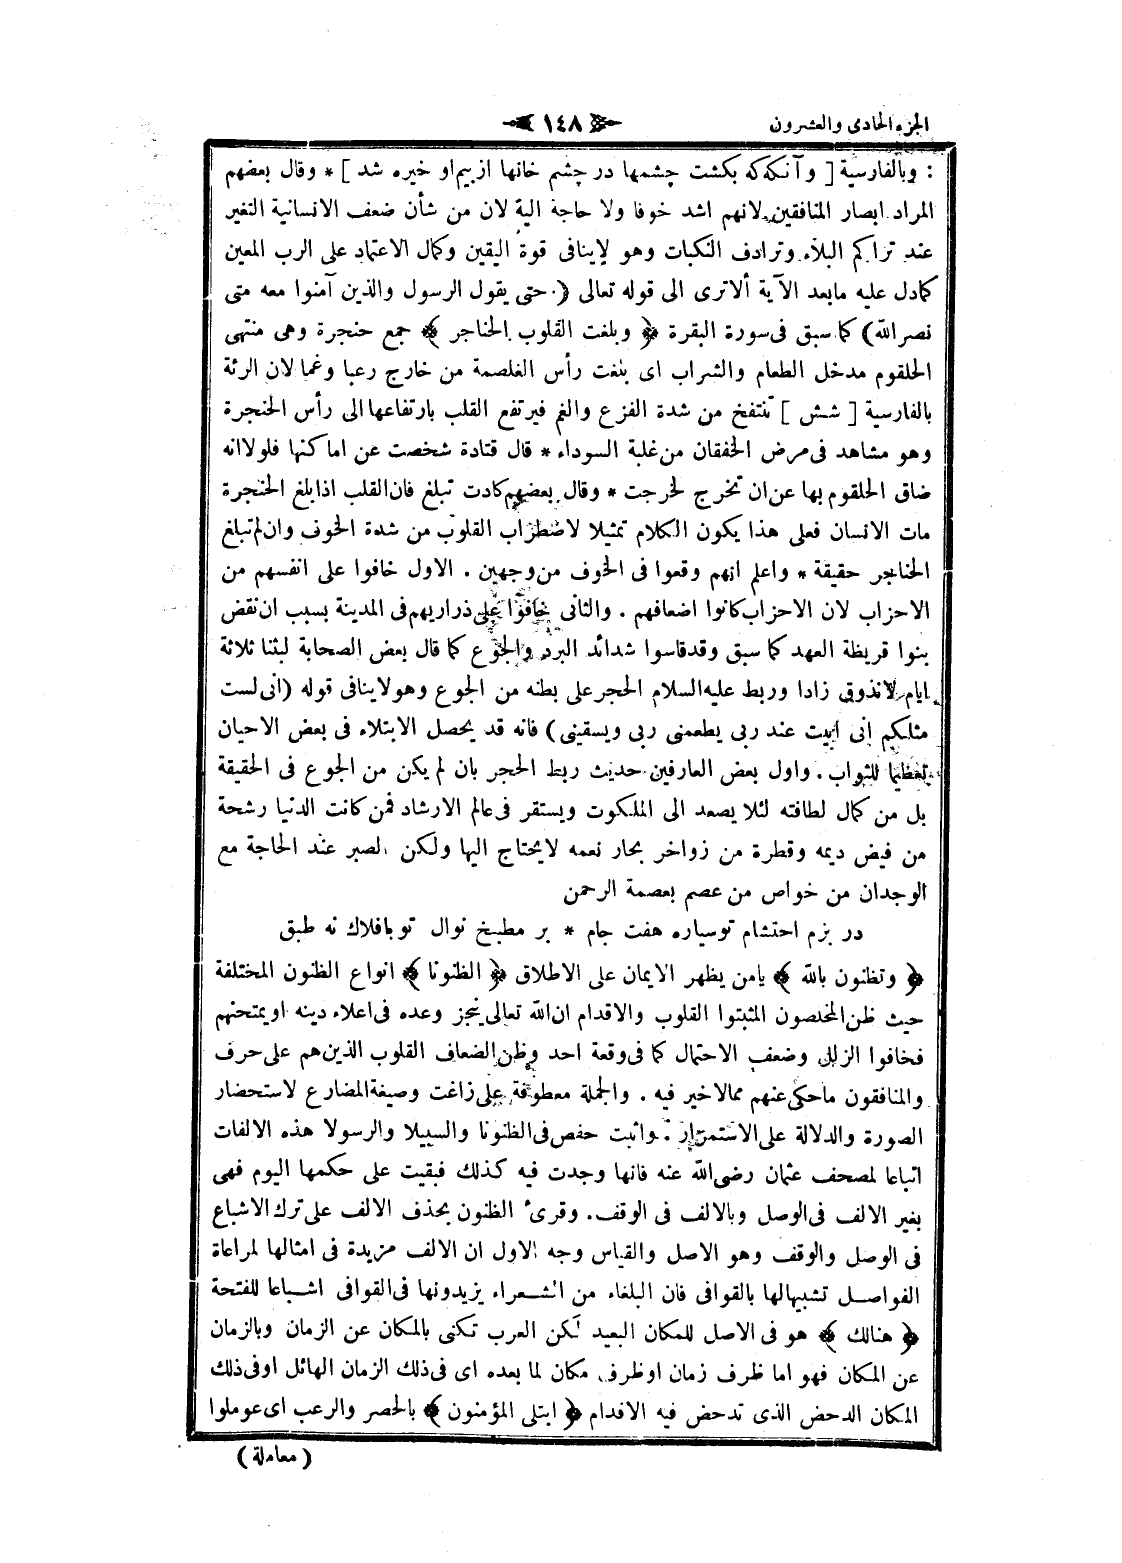 الجزء الحادى والعشرون
١٤٨
: وبالفارسية [ وآنكه كه بكشت چشمها در چشم خانها از بيم او خيره شد ] * وقال بعضهم
المراد ابصار المنافقين لانهم اشد خوفا ولا حاجة اليه لان من شأن ضعف الانسانية التغير
عند تراكم البلاء وترادف النكبات وهو لاينافى قوة اليقين وكمال الاعتماد على الرب المعين
كمادل عليه مابعد الآية ألاترى الى قوله تعالى ( حتى يقول الرسول والذين آمنوا معه متى
نصر الله) كما سبق فى سورة البقرة ﴿ وبلغت القلوب الحناجر ﴾ جمع حنجرة وهى منتهى
الحلقوم مدخل الطعام والشراب اى بلغت رأس الغلصمة من خارج رعبا وغما لان الرئة
بالفارسية [ شش ] تنتفخ من شدة الفزع والغم فيرتفع القلب بارتفاعها الى رأس الحنجرة
وهو مشاهد فى مرض الخفقان من غلبة السوداء * قال قتادة شخصت عن اماكنها فلولا انه
ضاق الحلقوم بها عن ان تخرج لخرجت * وقال بعضهم كادت تبلغ فان القلب اذا بلغ الحنجرة
مات الانسان فعلى هذا يكون الكلام تمثيلا لاضطراب القلوب من شدة الخوف وان لم تبلغ
الحناجر حقيقة * واعلم انهم وقعوا فى الخوف من وجهين . الاول خافوا على انفسهم من
الاحزاب لان الاحزاب كانوا اضعافهم . والثانى خافوا على ذراريهم فى المدينة بسبب ان نقض
بنوا قريظة العهد كما سبق وقد قاسوا شدائد البرد والجوع كما قال بعض الصحابة لبثنا ثلاثة
ايام لانذوق زادا وربط عليه السلام الحجر على بطنه من الجوع وهو لاينافى قوله (انى لست
مثلكم انى ابيت عند ربى يطعمنى ربى ويسقينى) فانه قد يحصل الابتلاء فى بعض الاحيان
تعظيما للثواب . واول بعض العارفين حديث ربط الحجر بان لم يكن من الجوع فى الحقيقة
بل من كمال لطافته لئلا يصعد الى الملكوت ويستقر فى عالم الارشاد فمن كانت الدنيا رشحة
من فيض ديمه وقطرة من زواخر بحار نعمه لايحتاج اليها ولكن الصبر عند الحاجة مع
الوجدان من خواص من عصم بعصمة الرحمن
در بزم احتشام توسياره هفت جام * بر مطبخ نوال تو بافلاك نه طبق
﴿ وتظنون بالله ﴾ يامن يظهر الايمان على الاطلاق ﴿ الظنونا ﴾ انواع الظنون المختلفة
حيث ظن المخلصون المثبتوا القلوب والاقدام ان الله تعالى ينجز وعده فى اعلاء دينه او يمتحنهم
فخافوا الزلل وضعف الاحتمال كما فى وقعة احد وظن الضعاف القلوب الذين هم على حرف
والمنافقون ماحكى عنهم ممالاخير فيه . والجملة معطوفة على زاغت وصيغة المضارع لاستحضار
الصورة والدلالة على الاستمرار . واثبت حفص فى الظنونا والسبيلا والرسولا هذه الالفات
اتباعا لمصحف عثمان رضى الله عنه فانها وجدت فيه كذلك فبقيت على حكمها اليوم فهى
بغير الالف فى الوصل وبالالف فى الوقف . وقرىء الظنون بحذف الالف على ترك الاشباع
فى الوصل والوقف وهو الاصل والقياس وجه الاول ان الالف مزيدة فى امثالها لمراعاة
الفواصل تشبيها لها بالقوافى فان البلغاء من الشعراء يزيدونها فى القوافى اشباعا للفتحة
﴿ هنالك ﴾ هو فى الاصل للمكان البعيد لكن العرب تكنى بالمكان عن الزمان وبالزمان
عن المكان فهو اما ظرف زمان او ظرف مكان لما بعده اى فى ذلك الزمان الهائل او فى ذلك
المكان الدحض الذى تدحض فيه الاقدام ﴿ ابتلى المؤمنون ﴾ بالحصر والرعب اى عوملوا
( معاملة )